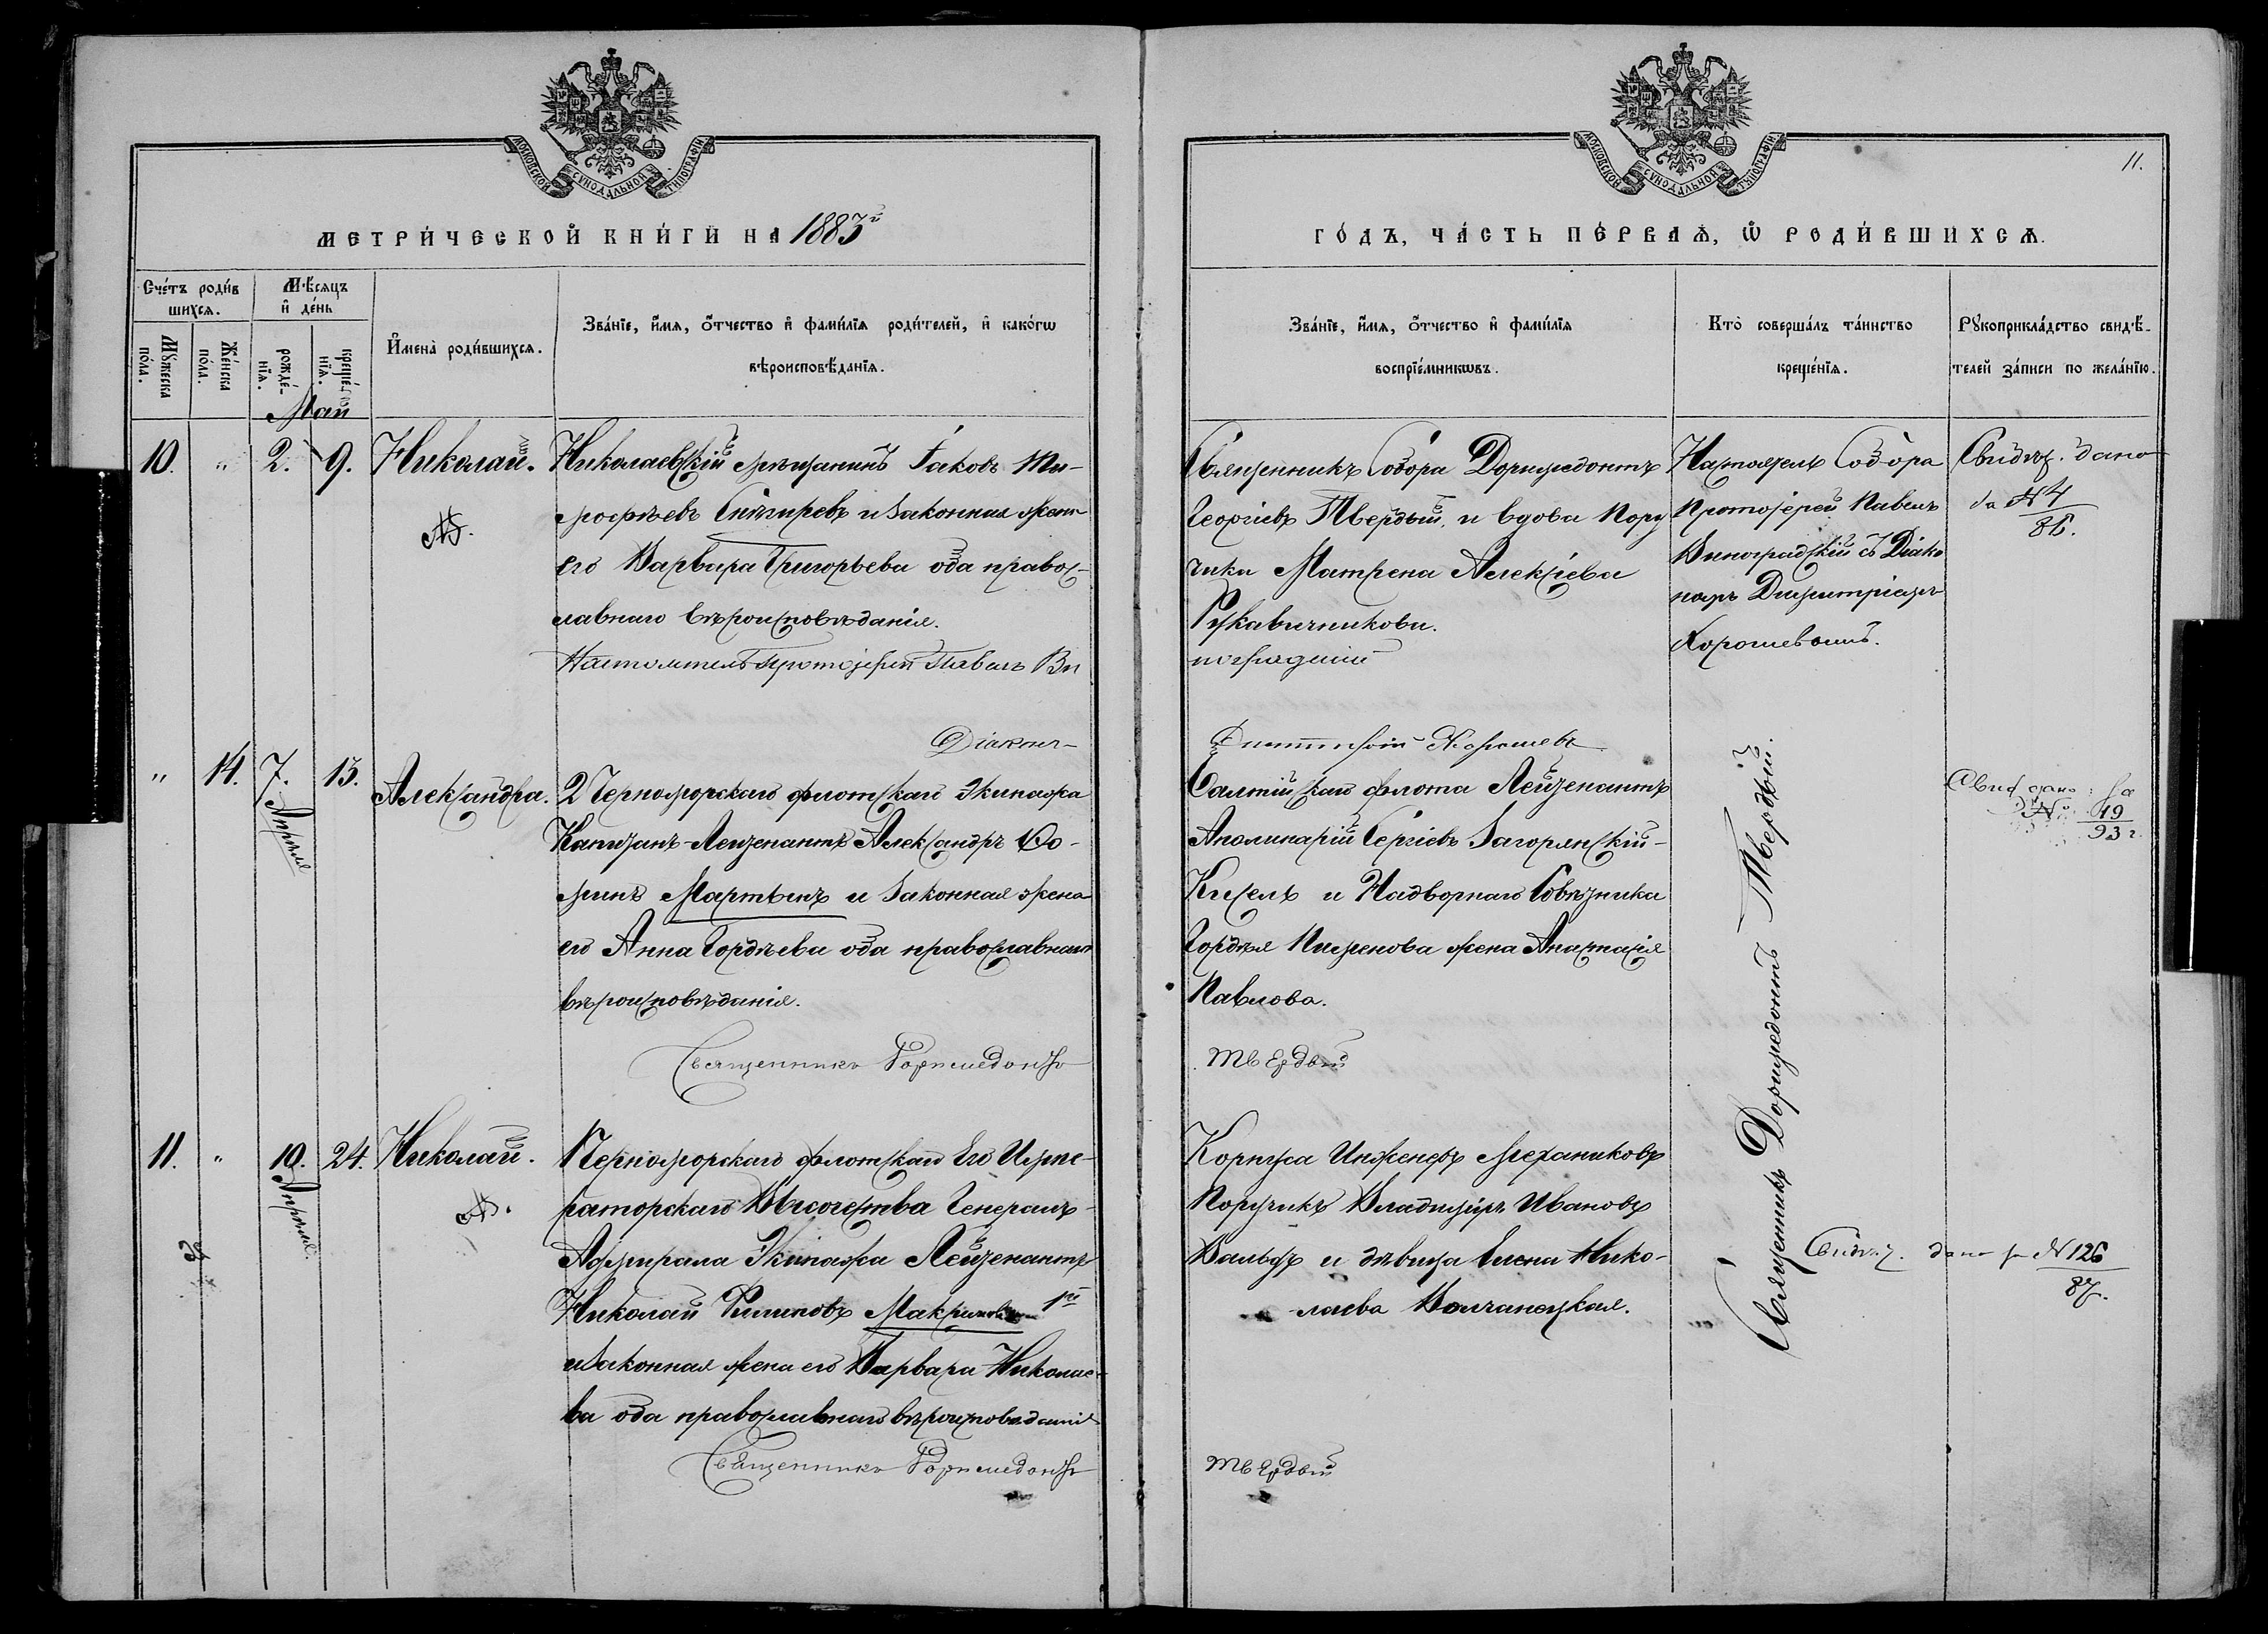 МОСКОВСКОЙ СѴНОДАЛЬНОЙ ТИПОГРАФІИ
МЕТРИ́ЧЕСКОЙ КНИ́ГИ НА 1883й
Сче́тъ роди́в
шихсѧ.
Мꙋжеска
по́ла.
Же́нска
по́ла.
Мѣ́сяцъ
и де́нь
рожде́-
нїѧ.
креще́-
нїѧ.
Имена̀ роди́вшихсѧ.
Зва́нїе, и́мѧ, о́тчество и фами́лїѧ роди́телей, и како́гѡ
вѣроисповѣ́данїѧ.
Май
10. " 2. 9. Николай.
Николаевскій мѣщанинъ Іаковъ Ти-
моѳеевъ Снѣгиревъ и законная жена
его Варвара Григорьева оба правос-
лавнаго вѣроисповѣданія.
Настоятель Протоіерей Павелъ Ви
Діаконъ
" 14. 7. Апрѣля 13. Александра.
2 Черноморскаго флотскаго Экипажа
Капитанъ-Лейтенантъ Александръ
Мартынъ и законная жена
его Анна Гордѣева оба православнаго
вѣроисповѣданія.
Священникъ Доримедонтъ
11. " 10. Апрѣля. 24. Николай.
Черноморскаго флотскаго Его Импе-
раторскаго Высочества Генералъ-
Адмирала Экипажа Лейтенантъ
Николай Филиповъ 1й
и законная жена его Варвара Николае-
ва оба православнаго вѣроисповѣданія
Священникъ Доримедонтъ
МОСКОВСКОЙ СѴНОДАЛЬНОЙ ТИПОГРАФІИ
11.
ГО́ДЪ, ЧА́СТЬ ПЕ́РВАѦ, Ѡ РОДИ́ВШИХСѦ.
Зва́нїе, и́мѧ, о́тчество и фами́лїѧ
воспрїе́мникѡвъ.
Кто̀ соверша́лъ та́инство
креще́нїѧ.
Рꙋкоприкла́дство свидѣ́-
телей за́писи по жела́нїю.
Священникъ Собора Доримедонтъ
Георгіевъ Твердый, и вдова Пору
чика Матрена Алексіева
Рукавичникова.
ноградскій
Димитрій Хорошевъ
Настоятель Собора
Протоіерей Павелъ
Виноградскій съ Діако
номъ Димитріемъ
Хорошевымъ.
Свидѣт. дано
за № 4
86.
Балтійскаго флота Лейтенантъ
Аполинарій Сергіевъ Загорянскій-
Кисель и Надворнаго Совѣтника
Гордѣя Пименова жена Анастасія
Павлова.
Твердый
Свид дано: за
№ 49
93 г.
Корпуса Инженеръ Механиковъ
Поручикъ Владиміръ Ивановъ
Вальдъ и дѣвица Елена Нико-
лаева Волчанецкая.
Твердый
Священникъ Доримедонтъ Твердый.
Свидѣт. дано за № 126
87.